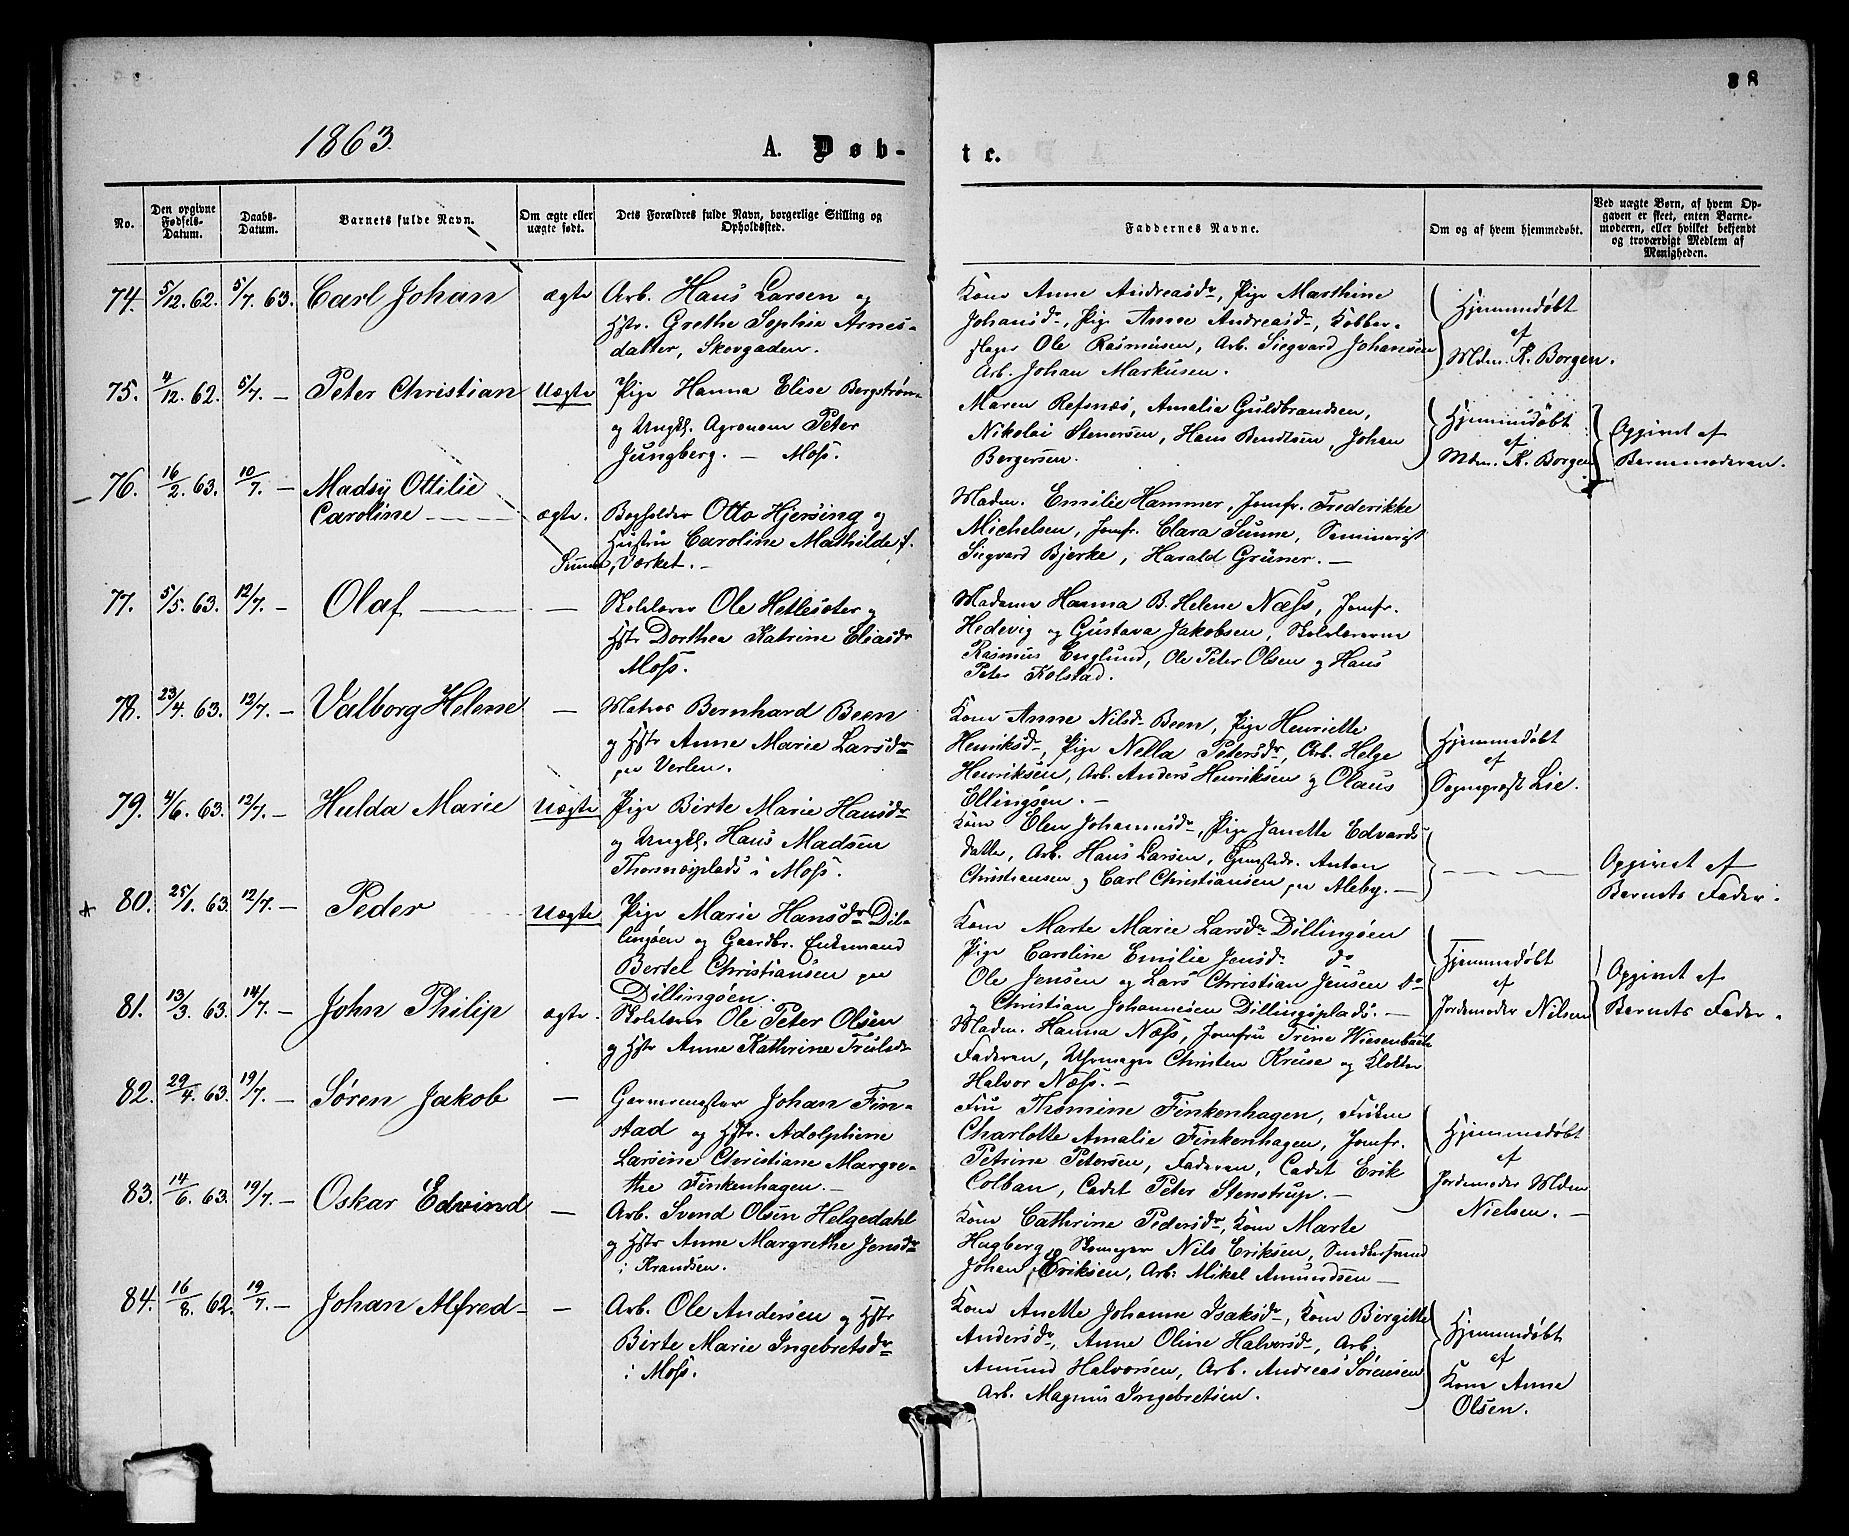 88
1863.
A. Døb-
te.
No.
Den opgivne Fødsels-Datum.
Daabs-Datum.
Barnets fulde Navn.
Om ægte eller uægte født.
Dets Forældres fulde Navn, borgerlige Stilling og Opholdssted.
Faddernes Navne.
Om og af hvem hjemmedøbt.
Ved uægte Børn, af hvem Opgaven er skeet, enten Barnemoderen, eller hvilket bekjendt og troværdigt Medlem af Menigheden.
74. 5/12. 62. 5/7. 63. Carl Johan ægte
Arb. Hans Larsen og
Hstr. Grethe Sophie Arnes-
datter, Skovgaden.
Kone Anne Andreasdr, Pige Marthine
Johansdr, Pige Anne Andreasdr, Kobber-
slager Ole Rasmusen, Arb. Siegvard Johansen
Arb. Johan Markusen.
Hjemmedøbt
af
Mdm. K. Borgen.
75. 4/12. 62. 5/7. — Peter Christian Uægte
Pige Hanna Elise Bergstrøm
og Ungk. Agronom Peter
Jungberg. — Moss.
Maren Refsnæs, Amalia Guldbrandsen,
Nikolai Stenersen, Hans Bendtsen, Johan
Borgersen.
Hjemmedøbt
af
Mdm. K. Borgen
Opgivet af
Barnemoderen.
76. 16/2. 63. 10/7. — Madsy Ottilie
Caroline ægte.
Bogholder Otto Hjersing og
Hustru Caroline Mathilde f.
Sunne, Værket. —
Madm. Emilie Hammer, Jomfr. Frederikke
Michelsen, Jomfr. Clara Sunne, Seminarist
Siegvard Bjerke, Harald Grüner. —
77. 5/5. 63. 12/7. — Olaf —
Skolelærer Ole Hetlesæter og
Hstr Dorthea Katrine Eliasdr
Moss.
Madame Hanna B. Helene Næss, Jomfr.
Hedevig og Gustava Jakobsen, Skolelærerne
Rasmus Englund, Ole Peter Olsen og Hans
Peter Kolstad.
78. 23/4. 63. 12/7. — Valborg Helene —
Matros Bernhard Been
og Hstr Anne Marie Larsdr
paa Verlen.
Kone Anne Nilsdr Been, Pige Henriette
Henriksdr, Pige Nella Petersdr, Arb. Helge
Henriksen, Arb. Anders Henriksen og Olaus
Ellingsen. —
Hjemmedøbt
af
Sognepræst Lie.
79. 4/6. 63. 12/7. — Hulda Marie Uægte
Pige Birte Marie Hansdr
og Ungk. Hans Madsen
Thornæsplads i Moss.
Kone Olea Johannesdr, Pige Janette Edvards-
datter, Arb. Hans Larsen, Anton
Christiansen og Carl Christiansen paa Aleby. —
Opgivet af
Barnets Fader.
80. 25/1. 63. 12/7. — Peder Uægte
Pige Marie Hansdr Dil-
lingøen og Gaardbr. Enkemand
Bertel Christiansen paa
Dillingøen.
Kone Marte Marie Larsdr Dillingøen
Pige Caroline Emilie Jensdr do
Ole Jensen og Lars Christian Jensen do
og Christian Johannesen Dillingsplads. —
Hjemmedøbt
af
Jordemoder Nilsen
Opgivet af
Barnets Fader.
81. 13/3. 63. 14/7. — John Philip ægte.
Skolelærer Ole Peter Olsen
og Hstr Anne Kathrine Trulsdr
Madm. Hanna Næss, Jomfru Trine Wiesenbach
Faderen, Uhrmager Christen Kruse og Klokker
Halvor Næss. —
82. 29/4. 63. 19/7. — Søren Jakob —
Garvermester Johan Fin-
stad og Hstr. Adolphine
Larsine Christiane Margre-
the Finkenhagen. —
Fru Thomine Finkenhagen, Frøken
Charlotte Amalie Finkenhagen, Jomfr.
Petrine Petersen, Faderen, Cadet Erik
Colban, Cadet Peter Stenstrup. —
Hjemmedøbt
af
Jordemoder Mdm
Nielsen. —
83. 14/6. 63. 19/7. — Oskar Edvind —
Arb. Svend Olsen Helgedahl
og Hstr Anne Margrethe Jensdr
i Krandsen.
Kone Cathrine Pedersdr, Kone Marte
Hagberg, Skomager Nils Eriksen, Snedkersvend
Johan Eriksen, Arb. Mikel Amundsen —
84. 16/8. 62. 19/7. — Johan Alfred —
Arb. Ole Andersen og Hstr
Birte Marie Ingebretsdr
i Moss.
Kone Anette Johanne Isaksdr, Kone Birgitte
Andersdr, Anne Oline Halvorsdr, Arb.
Amund Halvorsen, Arb. Andreas Sørensen
Arb. Magnus Ingebretsen.
Hjemmedøbt
af
Kone Anne
Olsen.